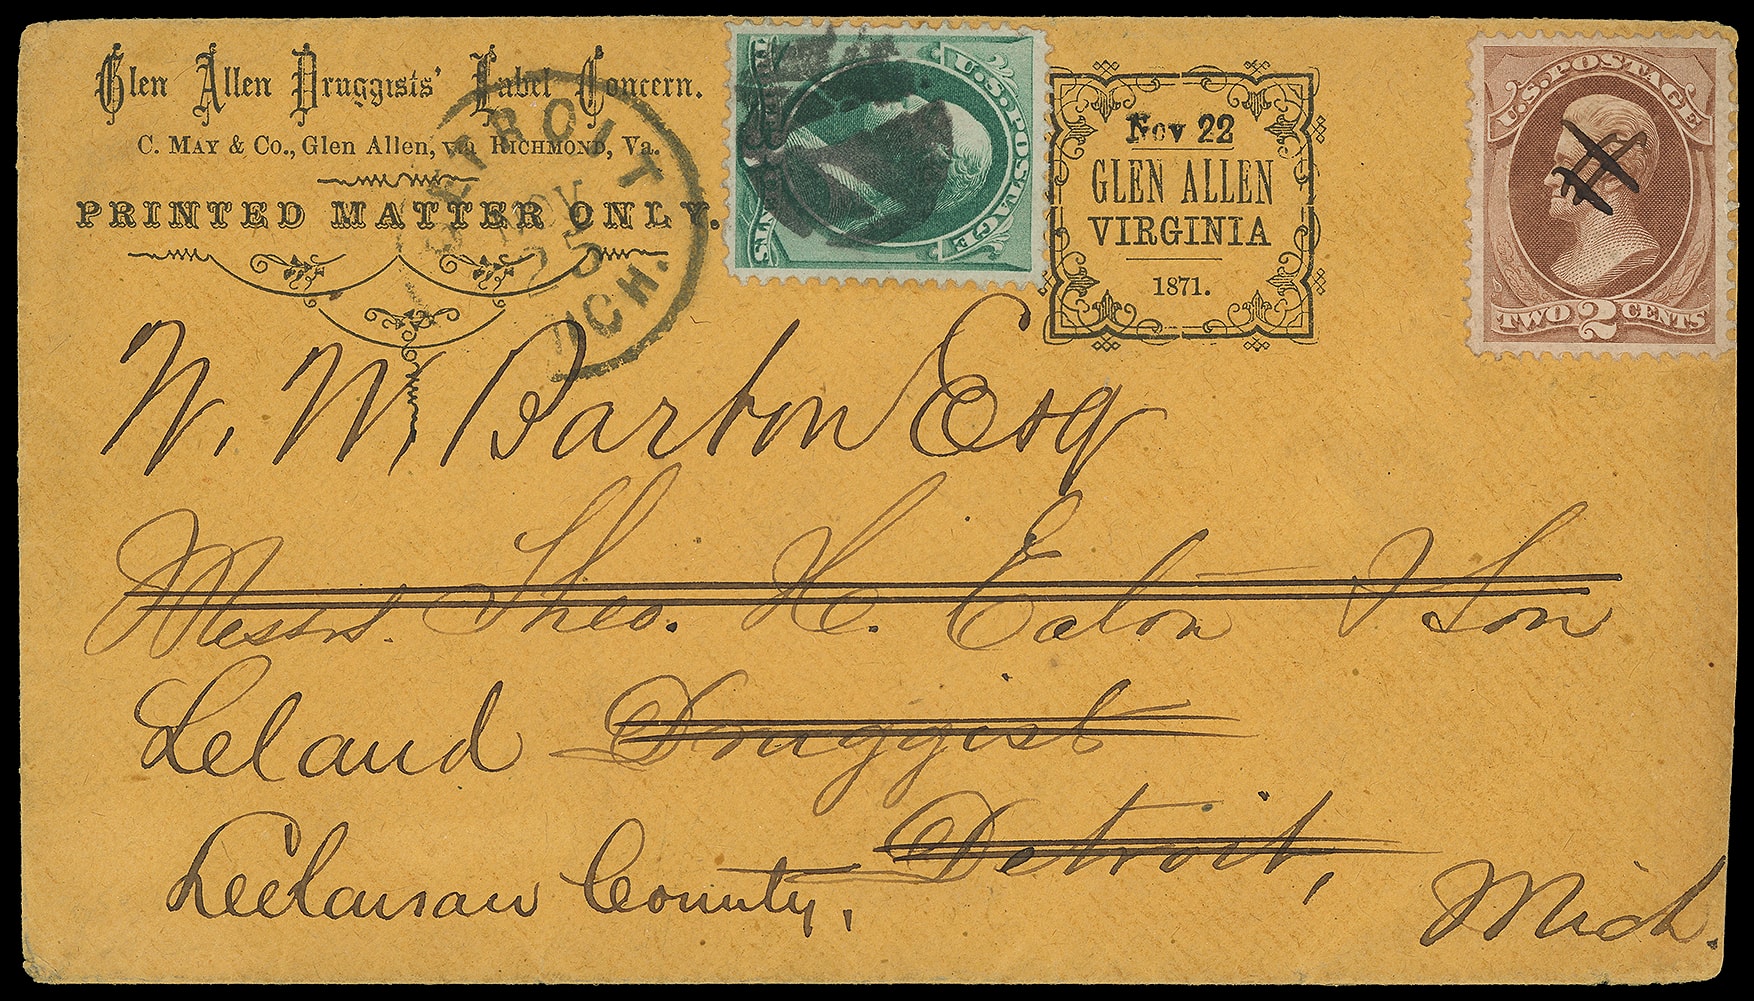 Glen Allen Druggists' Label Concern.
C. MAY & CO., Glen Allen, via RICHMOND, Va.
PRINTED MATTER ONLY.
DETROIT
NOV
25
MICH.
U.S. POSTAGE
CENTS
Nov 22
GLEN ALLEN
VIRGINIA
1871.
U.S. POSTAGE
TWO 2 CENTS
W. W. Barton Esq
Messrs. Theo. H. Eaton & Son
Leland Druggist
Detroit,
Leelanaw County,
Mich.